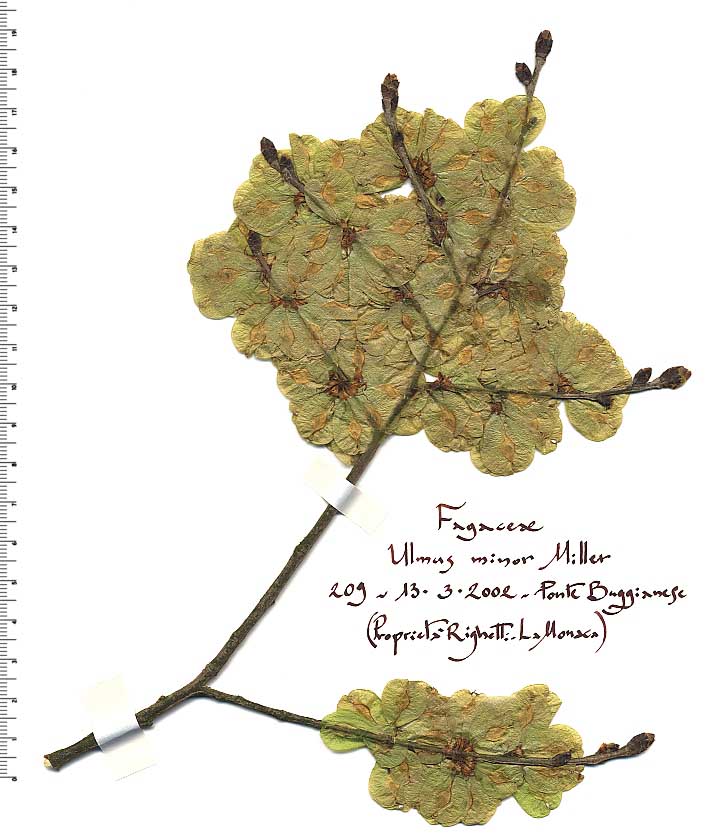 Fagaceae
Ulmus minor Miller
209 ~ 13 · 3 · 2002 ~ Ponte Buggianese
(Proprietà Righetti-La Monaca)